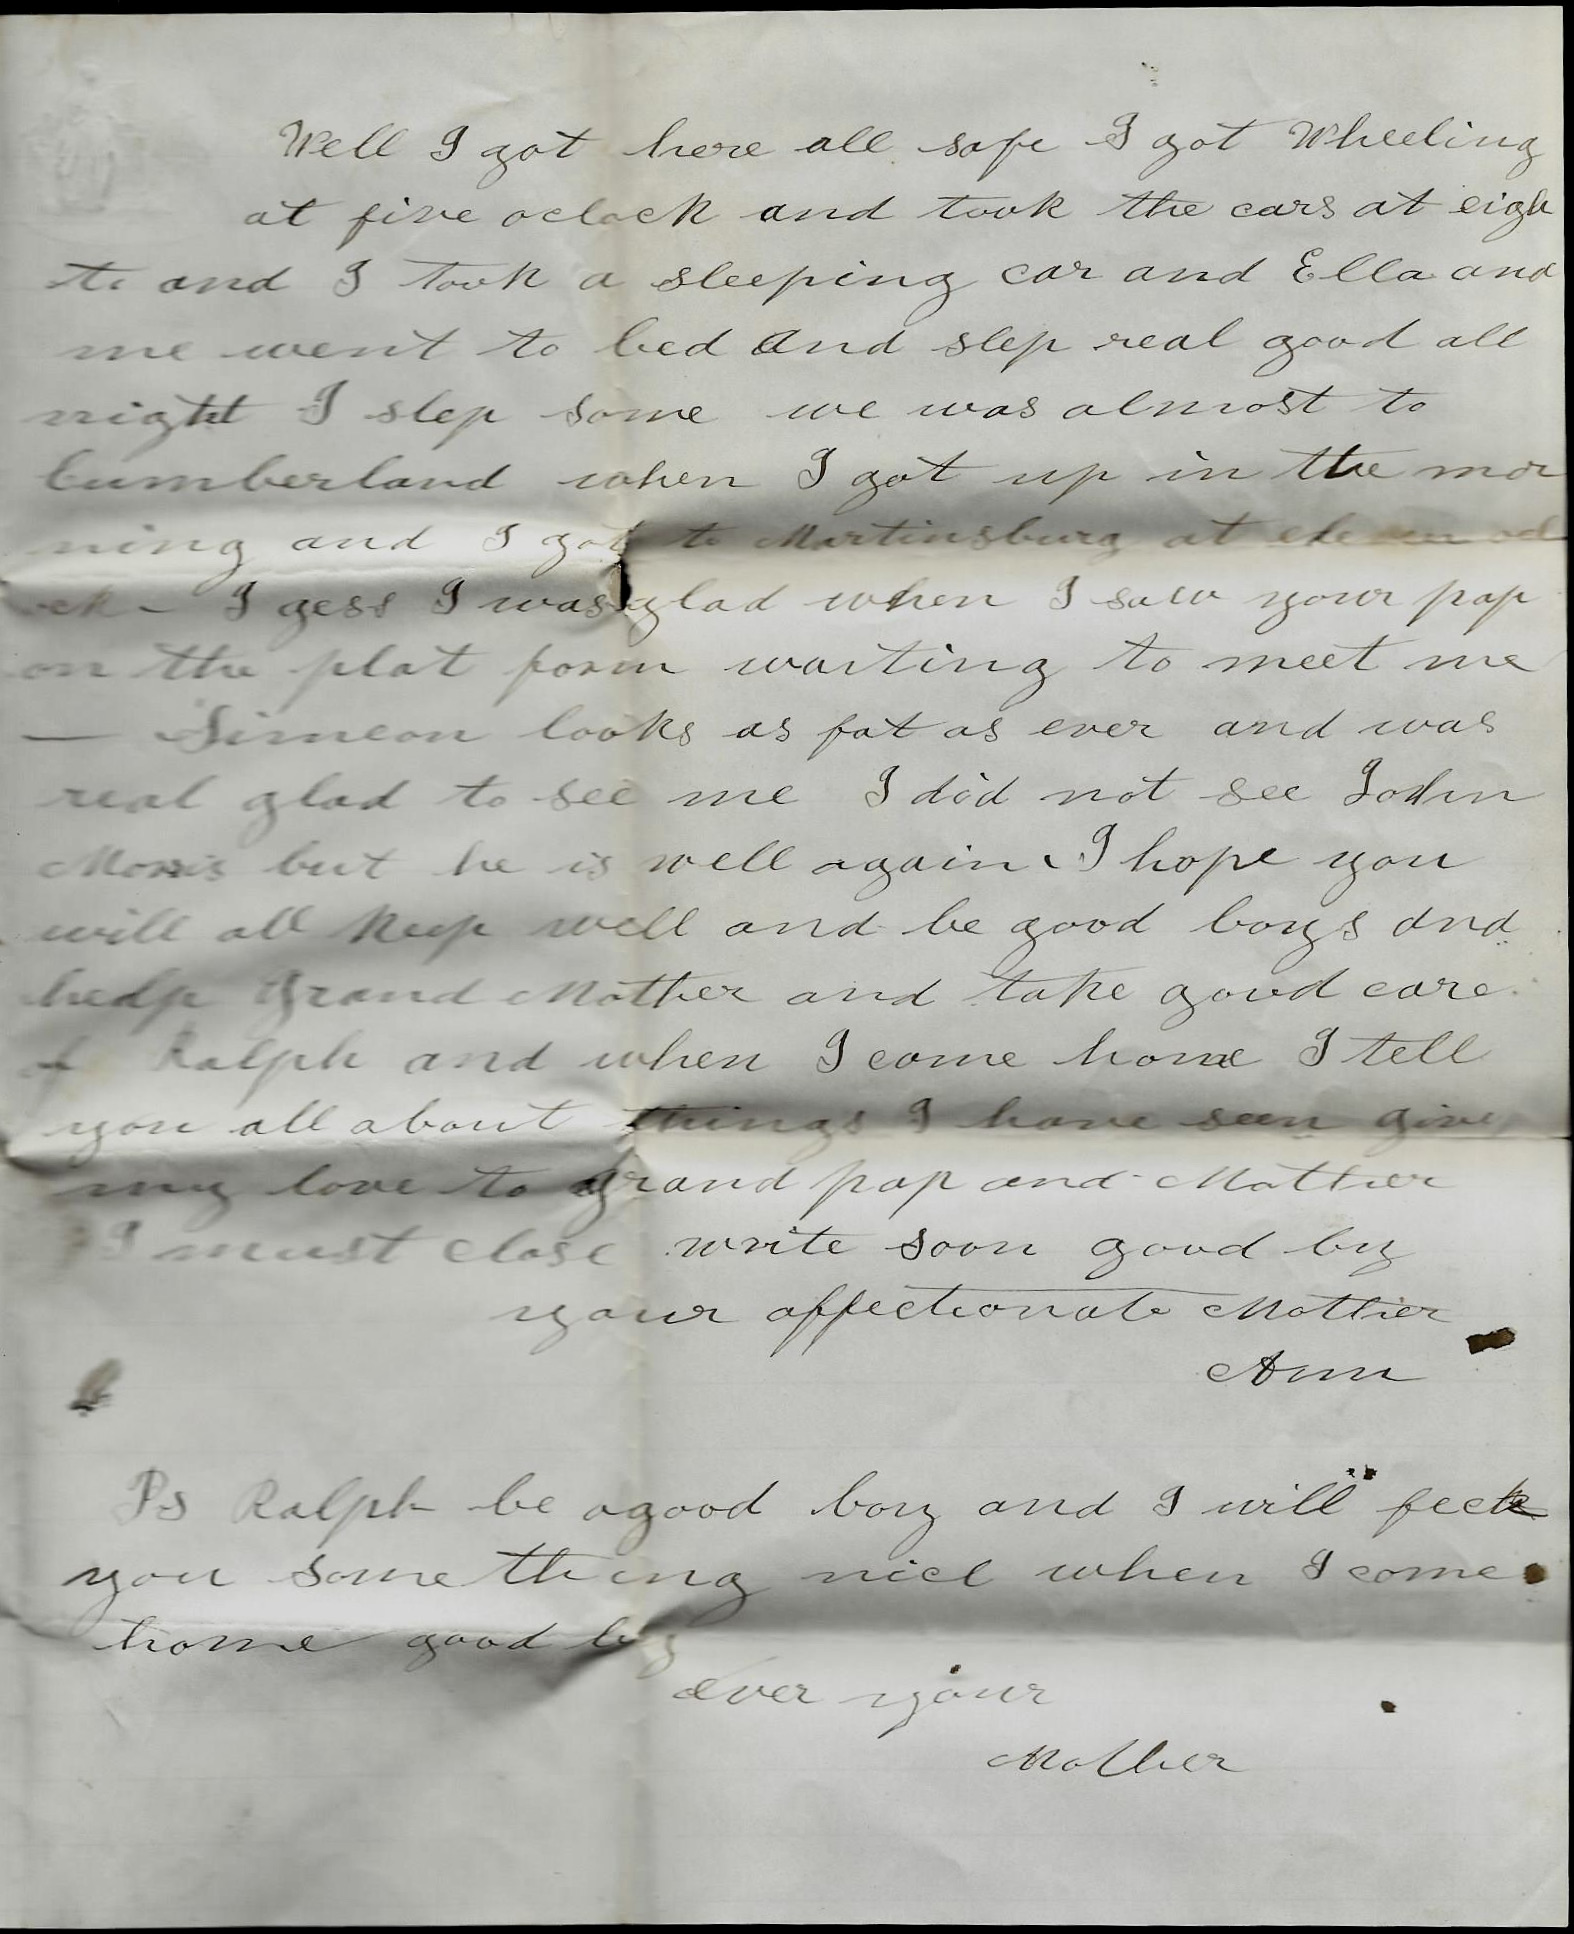 Well I got here all safe I got Wheeling
at five oclock and took the cars at eigh
te and I took a sleeping car and Ella and
me went to bed and slep real good all
night I slep some we was almost to
Cumberland when I got up in the mor
ning and I got to Martinsburg at eleven ocl
ock - I gess I was glad when I saw your pap
on the plat form waiting to meet me
— Simeon looks as fat as ever and was
real glad to see me I did not see John
Morris but he is well again I hope you
will all keep well and be good boys and
hedp Grand Mother and take good care
of Ralph and when I come home I tell
you all about things I have seen give
my love to grand pap and Mother
I must close write soon good by
your affectionate Mother
Ann
Ps Ralph be a good boy and I will feck
you something nice when I come
home good by
ever your
Mother